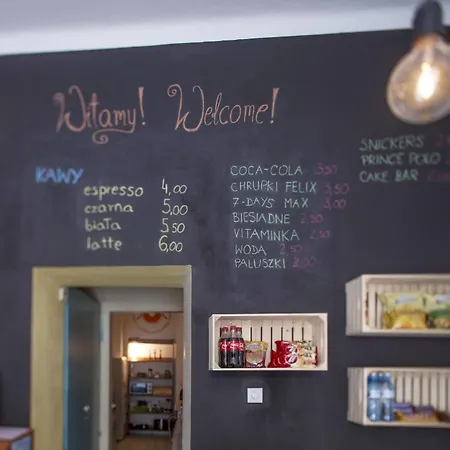 Witamy! Welcome!
KAWY
espresso 4,00
czarna 5,00
biała 5,50
latte 6,00
COCA-COLA 3,50
CHRUPKI FELIX 3,50
7-DAYS MAX 3,00
BIESIADNE 2,50
VITAMINKA 2,50
WODA 2,50
PALUSZKI 2,00
SNICKERS
PRINCE POLO
CAKE BAR